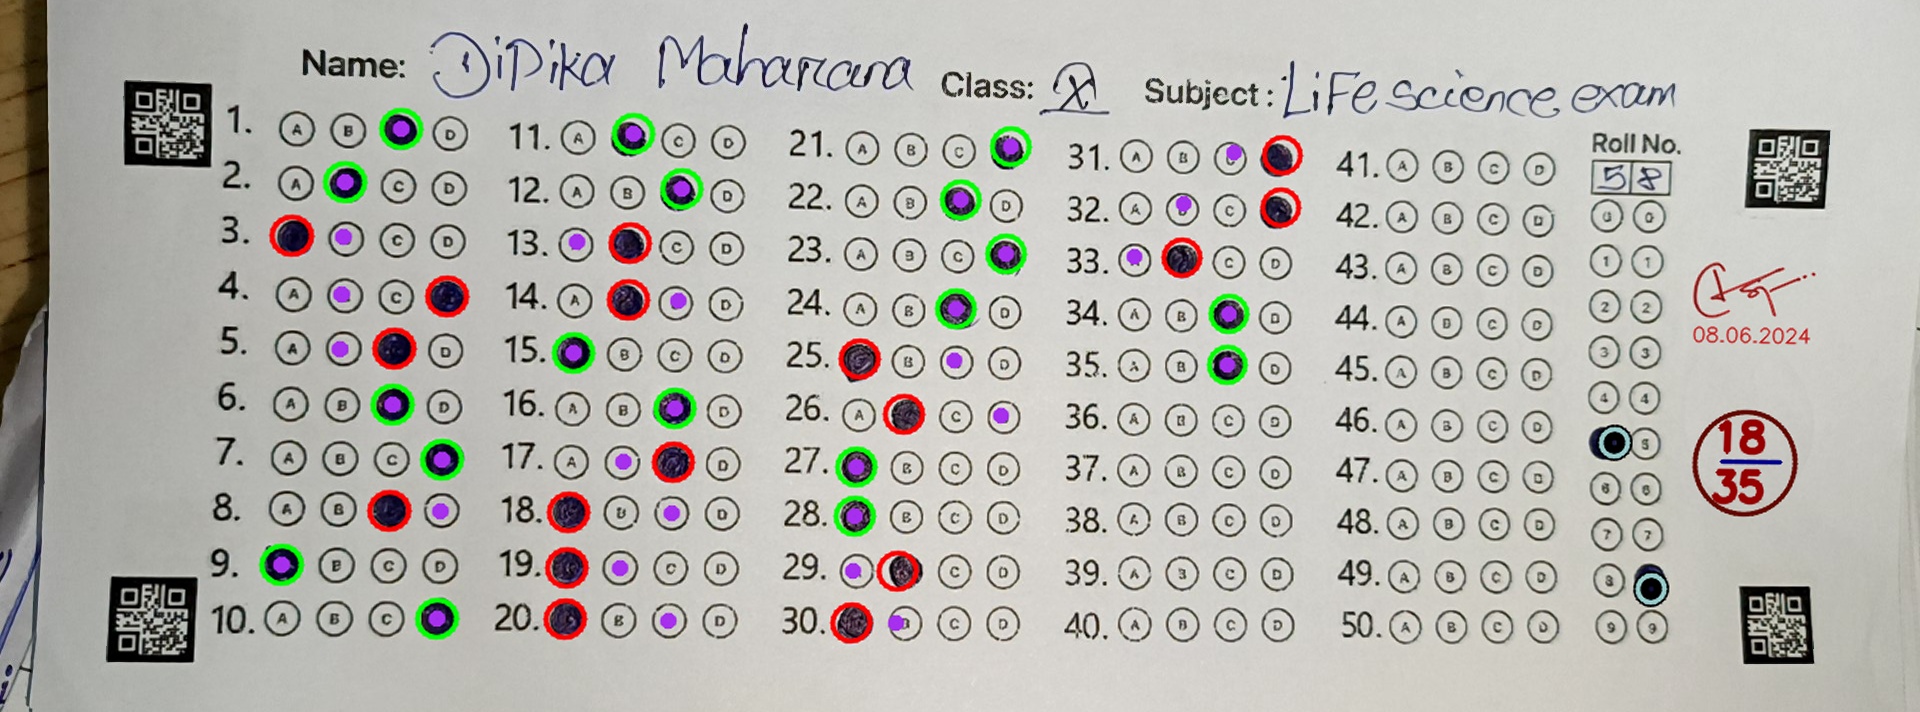 Name: Dipika Maharana Class: X Subject: Life science exam
1. A B D
2. A C D
3. C D
4. A C
5. A D
6. A B D
7. A B C
8. A B
9. B C D
10. A B C
11. A C D
12. A B D
13. C D
14. A D
15. B C D
16. A B D
17. A D
18. B D
19. C D
20. B D
21. A B C
22. A B D
23. A B C
24. A B D
25. B D
26. A C
27. B C D
28. B C D
29. C D
30. C D
31. A B
32. A C
33. C D
34. A B D
35. A B D
36. A B C D
37. A B C D
38. A B C D
39. A B C D
40. A B C D
41. A B C D
42. A B C D
43. A B C D
44. A B C D
45. A B C D
46. A B C D
47. A B C D
48. A B C D
49. A B C D
50. A B C D
Roll No.
58
0 0
1 1
2 2
3 3
4 4
5
6 6
7 7
8
9 9
08.06.2024
18
35